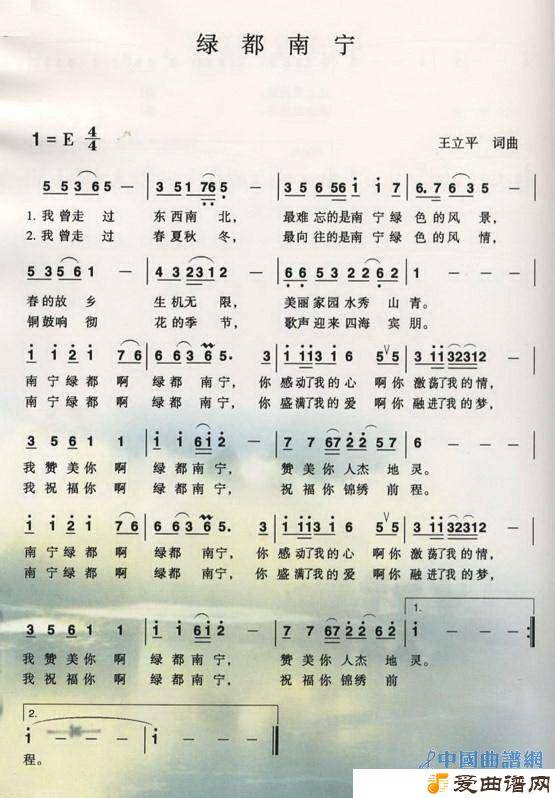 绿都南宁
1=E 4/4 王立平 词曲
5 5 3 6 5 — | 3 5 1 7 6 5 — | 3 3 5 6 5 6 1 | 6. 7 6 3 5 — |
1.我曾走过 东西南北， 最难忘的是南宁绿色的风景，
2.我曾走过 春夏秋冬， 最向往的是南宁绿色的风情，
5 3 5 6 1 — | 4 3 2 3 1 2 — | 6 6 5 3 2 2 6 2 | 1 — — — |
春的故乡 生机无限， 美丽家园水秀山青。
铜鼓响彻 花的季节， 歌声迎来四海宾朋。
1 1 2 1 7 6 | 6 3 2 3 6 5. | 3 1 1 1 3 1 6 5 5 | 3 1 1 3 2 3 1 2 — |
南宁绿都啊 绿都南宁， 你感动了我的心 啊你激荡了我的情，
南宁绿都啊 绿都南宁， 你盛满了我的爱 啊你融进了我的梦，
3 5 6 1 1 | 1 1 6 1 2 — | 7 7 6 7 2 2 5 7 | 6 — — — |
我赞美你啊 绿都南宁， 赞美你人杰地灵。
我祝福你啊 绿都南宁， 祝福你锦绣前程。
1 1 2 1 7 6 | 6 3 2 3 6 5. | 3 1 1 1 3 1 6 5 5 | 3 1 1 3 2 3 1 2 — |
南宁绿都啊 绿都南宁， 你感动了我的心 啊你激荡了我的情，
南宁绿都啊 绿都南宁， 你盛满了我的爱 啊你融进了我的梦，
1.
3 5 6 1 1 | 1 1 6 1 2 — | 7 7 6 7 2 2 6 7 | 1 — — — :|
我赞美你啊 绿都南宁， 赞美你人杰地灵。
我祝福你啊 绿都南宁， 祝福你锦绣前
2.
1 — — — | 1 — — — |
程。
中國曲譜網
爱曲谱网